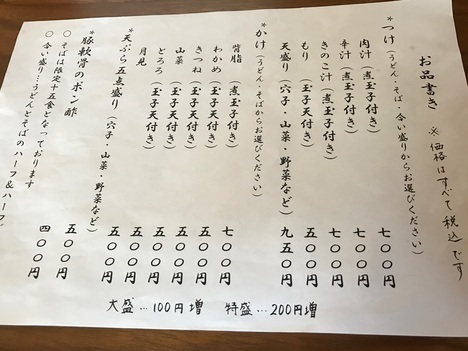 お品書き ※価格はすべて税込です
*つけ(うどん・そば・合い盛りからお選びください)
肉汁(煮玉子付き) 七〇〇円
辛汁(煮玉子付き) 七〇〇円
きのこ汁(煮玉子付き) 七〇〇円
もり(玉子天付き) 五〇〇円
天盛り(穴子・山菜・野菜など) 九五〇円
*かけ(うどん・そばからお選びください)
背脂(煮玉子付き) 七〇〇円
わかめ(玉子天付き) 五〇〇円
きつね(玉子天付き) 五〇〇円
山菜(玉子天付き) 五〇〇円
とろろ(玉子天付き) 五〇〇円
月見 五〇〇円
*天ぷら五点盛り(穴子・山菜・野菜など) 五〇〇円
*豚軟骨のポン酢 四〇〇円
〇そばは限定十五食となっております
〇合い盛り…うどんとそばのハーフ&ハーフ
大盛…100円増 特盛…200円増